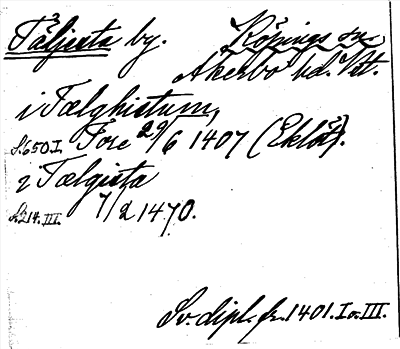 Täljesta by. Köpings sn,
Åkerbo hd. Vstt.
i Tælghistum,
S.650.I. Fore 29/6 1407 (Eklöt).
i Tælgista
S.214.III. 7/2 1470.
Sv. dipl. fr. 1401. I o. III.